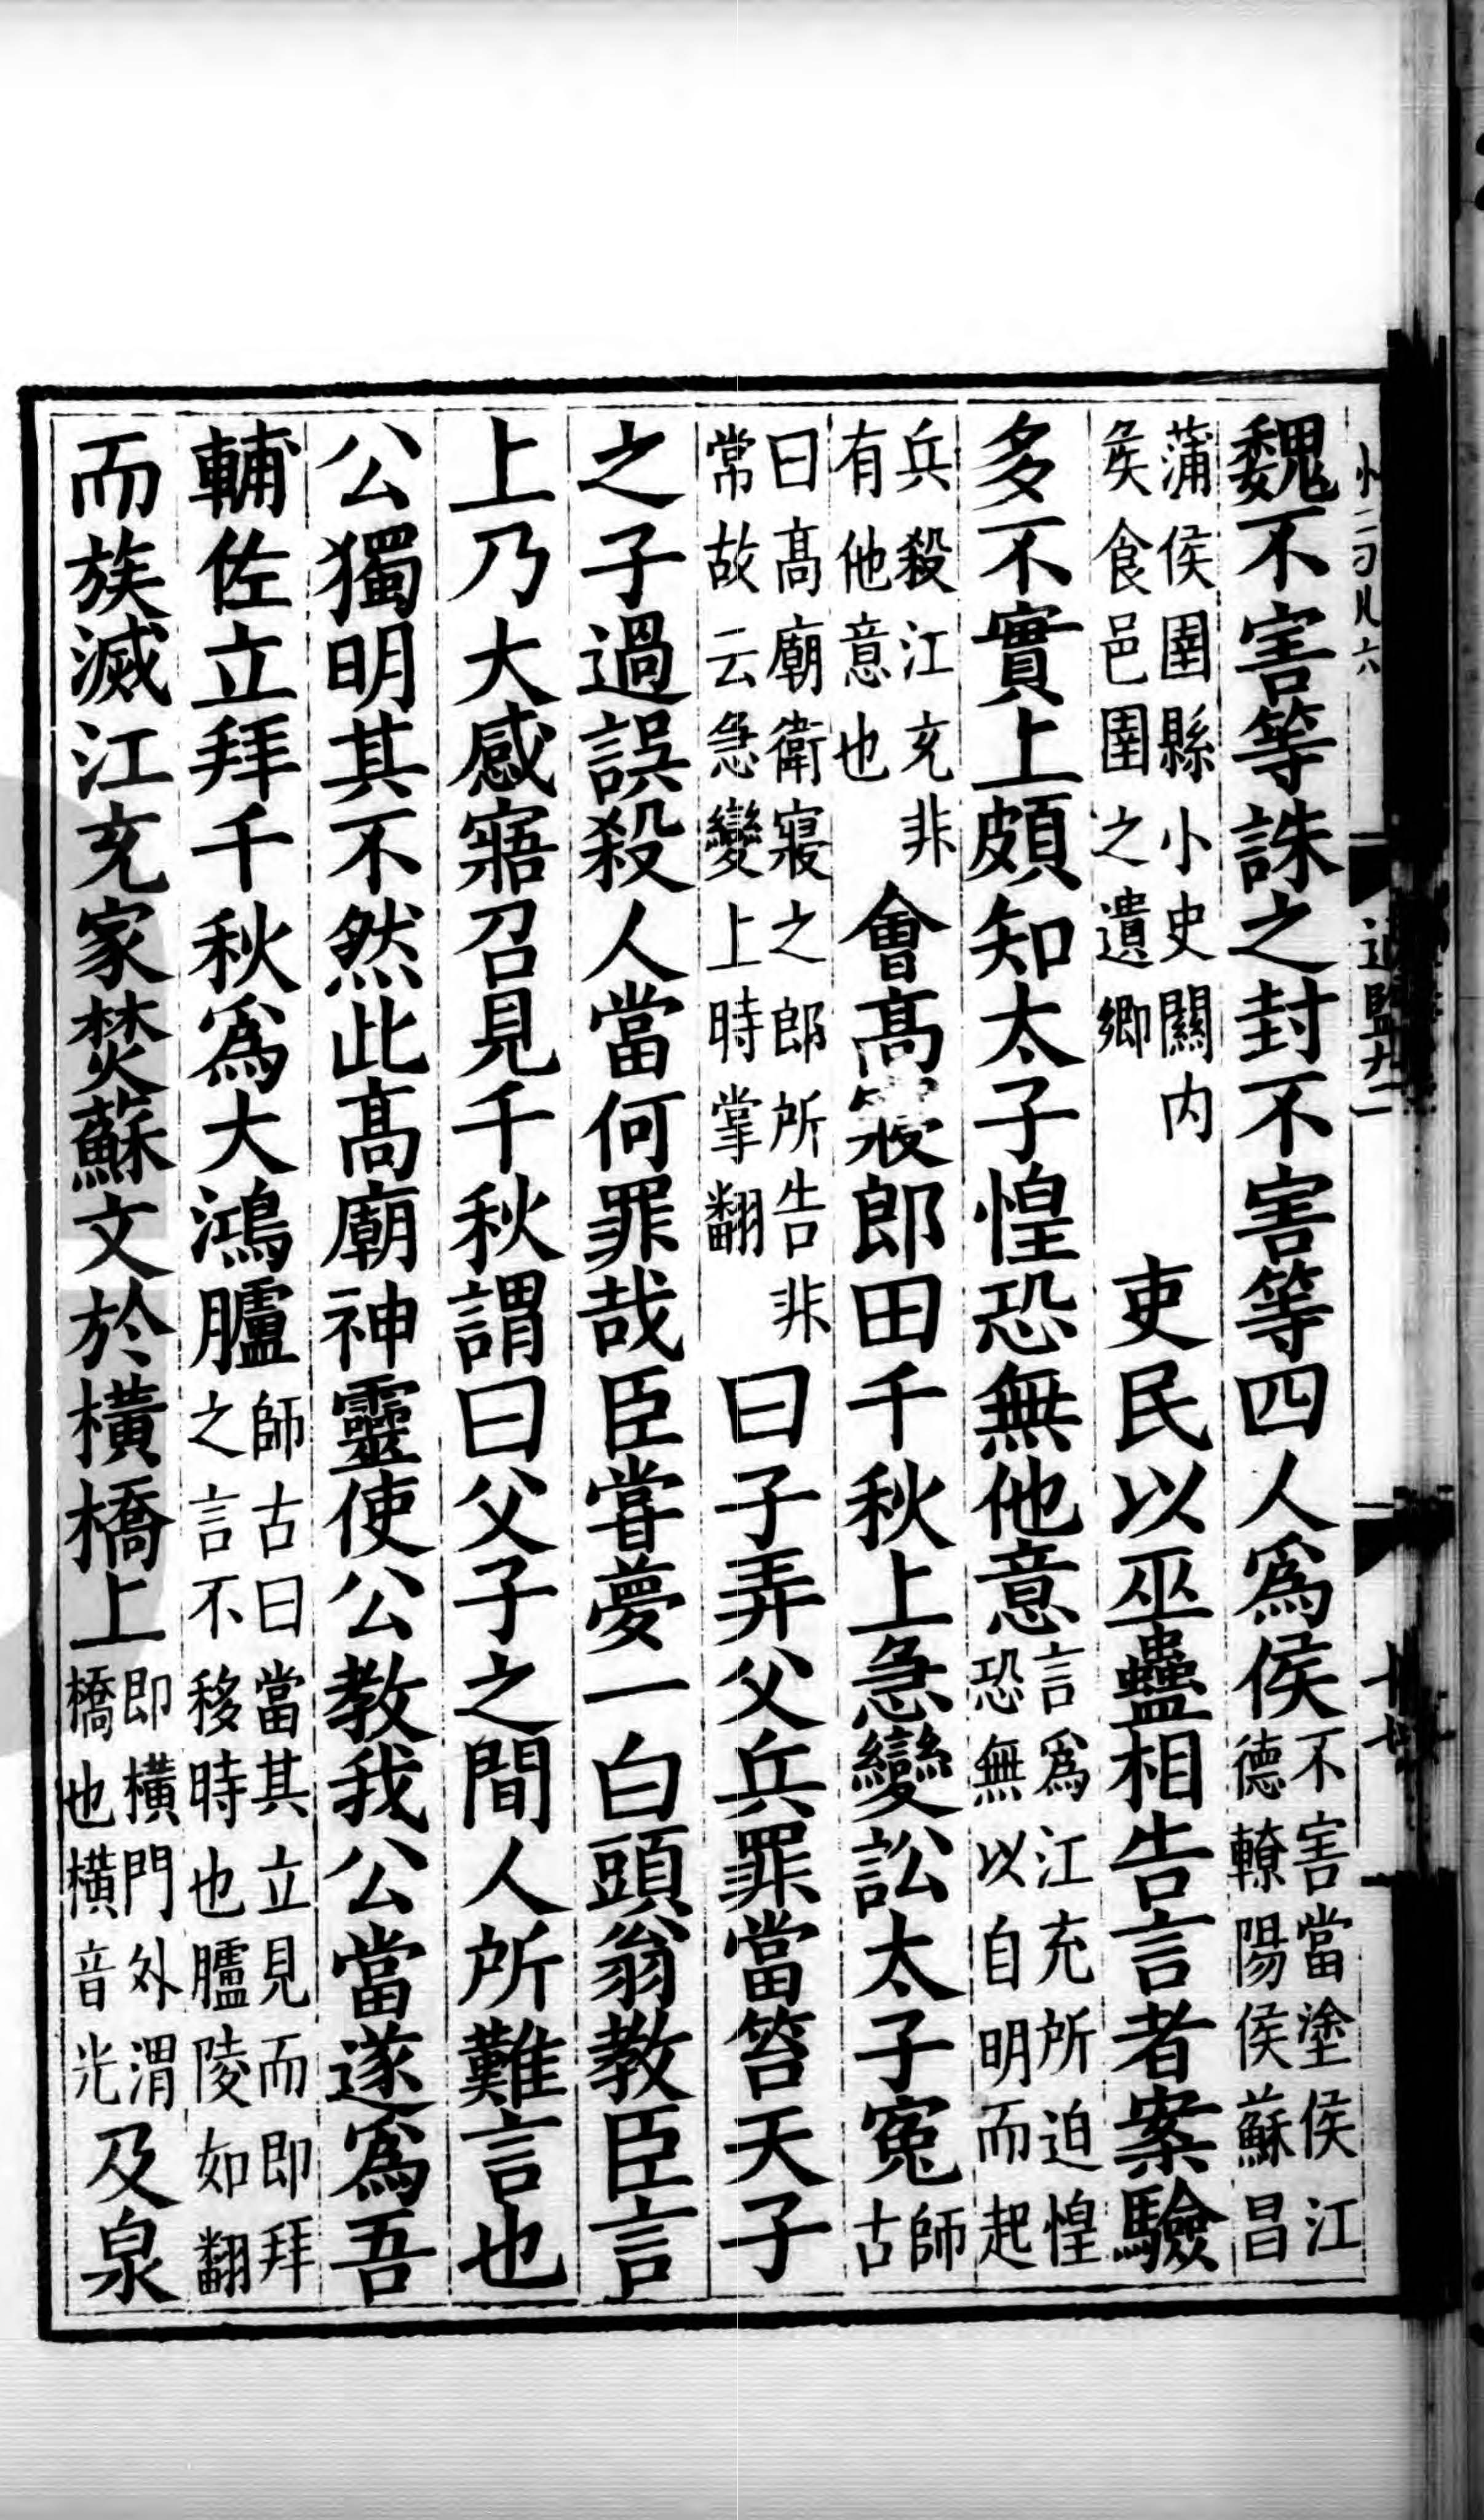 魏不害等誅之封不害等四人爲侯不害當塗侯江德轑陽侯蘇昌
蒲侯圉縣小史關内矦食邑圉之遺鄉吏民以巫蠱相告言者案驗
多不實上頗知太子惶恐無他意言爲江充所迫惶恐無以自明而起
兵殺江充非有他意也會高寢郎田千秋上急變訟太子冤師古
曰高廟衛寢之郎所告非常故云急變上時掌翻曰子弄父兵罪當笞天子
之子過誤殺人當何罪哉臣嘗夢一白頭翁教臣言
上乃大感寤召見千秋謂曰父子之間人所難言也
公獨明其不然此高廟神靈使公教我公當遂爲吾
輔佐立拜千秋爲大鴻臚師古曰當其立見而即拜之言不移時也臚陵如翻
而族滅江充家焚蘇文於橫橋上即橫門外渭橋也橫音光及泉